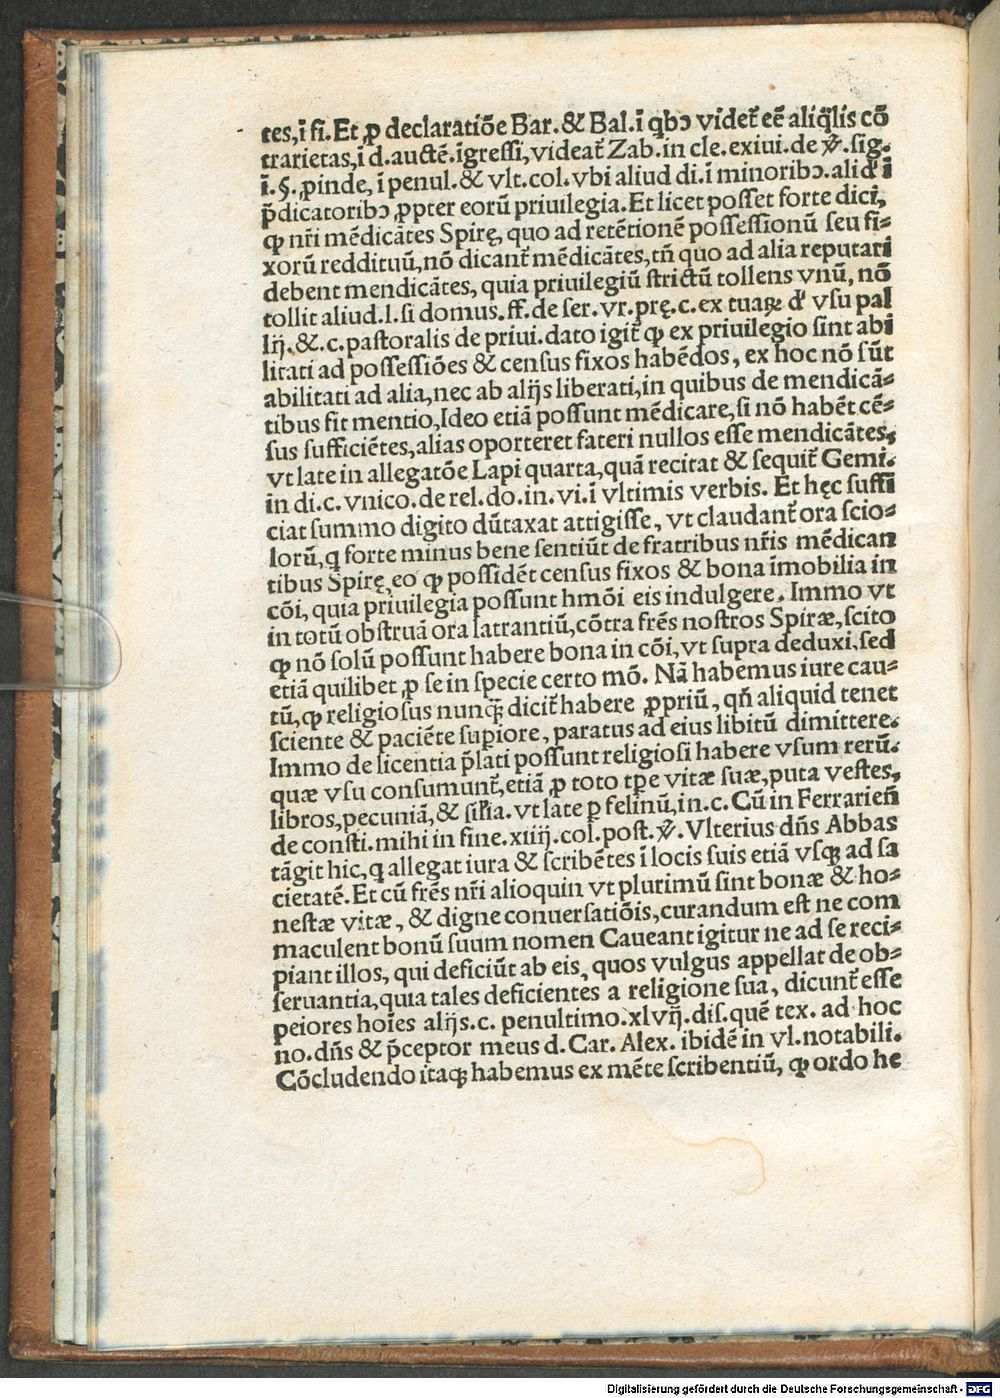 tes,ī fi. Et ꝓ declaratiōe Bar. & Bal. ī qbꝰ videt̄ eē aliq̄lis cō
trarietas,ī d. auctē. īgressi, videat̄ Zab. in cle. exiui. de ꝟ. sig.
ī. §. ꝓinde, ī penul. & vlt. col. vbi aliud di. ī minoribꝰ. aliď ī
p̄dicatoribꝰ ꝓpter eorū priuilegia. Et licet posset forte dici,
ꝙ nr̄i mēdicātes Spirę, quo ad retētionē possessionū seu fi⸗
xorū reddituū, nō dicant̄ mēdicātes, tn̄ quo ad alia reputari
debent mendicātes, quia priuilegiū strictū tollens vnū, nō
tollit aliud. l. si domus. ff. de ser. vr. prę. c. ex tuaꝝ d' vsu pal
lij. &. c. pastoralis de priui. dato igit̄ ꝙ ex priuilegio sint abi
litati ad possessiōes & census fixos habēdos, ex hoc nō sūt
abilitati ad alia, nec ab alijs liberati, in quibus de mendicā⸗
tibus fit mentio, Ideo etiā possunt mēdicare, si nō habēt cē⸗
sus sufficiētes, alias oporteret fateri nullos esse mendicātes,
vt late in allegatōe Lapi quarta, quā recitat & sequit̄ Gemi.
in di. c. vnico. de rel. do. in. vi. ī vltimis verbis. Et hęc suffi
ciat summo digito dūtaxat attigisse, vt claudant̄ ora scio⸗
lorū, q forte minus bene sentiūt de fratribus nr̄is mēdican
tibus Spirę, eo ꝙ possidēt census fixos & bona īmobilia in
cōi, quia priuilegia possunt hmōi eis indulgere. Immo vt
in totū obstruā ora latrantiū, cōtra frēs nostros Spiræ, scito
ꝙ nō solū possunt habere bona in cōi, vt supra deduxi. sed
etiā quilibet ꝓ se in specie certo mō. Nā habemus iure cau⸗
tū, ꝙ religiosus nunq̄ꝫ dicit̄ habere ꝓpriū, qn̄ aliquid tenet
sciente & paciēte supiore, paratus ad eius libitū dimittere.
Immo de licentia p̄lati possunt religiosi habere vsum rerū.
quæ vsu consumunt̄, etiā ꝓ toto tpe vitæ suæ, puta vestes,
libros, pecuniā, & silia. vt late p felinū, in. c. Cū in Ferrarien̄
de consti. mihi in fine. xiiij. col. post. ꝟ. Vlterius dn̄s Abbas
tāgit hic, q allegat iura & scribētes ī locis suis etiā vsqꝫ ad sa
cietatē. Et cū frēs nr̄i alioquin vt plurimū sint bonæ & ho⸗
nestæ vitæ, & digne conuersatiōis, curandum est ne com
maculent bonū suum nomen Caueant igitur ne ad se reci⸗
piant illos, qui deficiūt ab eis, quos vulgus appellat de ob⸗
seruantia, quia tales deficientes a religione sua, dicunt̄ esse
peiores hoīes alijs. c. penultimo. xlvij. dis. quē tex. ad hoc
no. dn̄s & p̄ceptor meus d. Car. Alex. ibidē in vl. notabili.
Cōcludendo itaqꝫ habemus ex mēte scribentiū, ꝙ ordo he
Digitalisierung gefördert durch die Deutsche Forschungsgemeinschaft - DFG